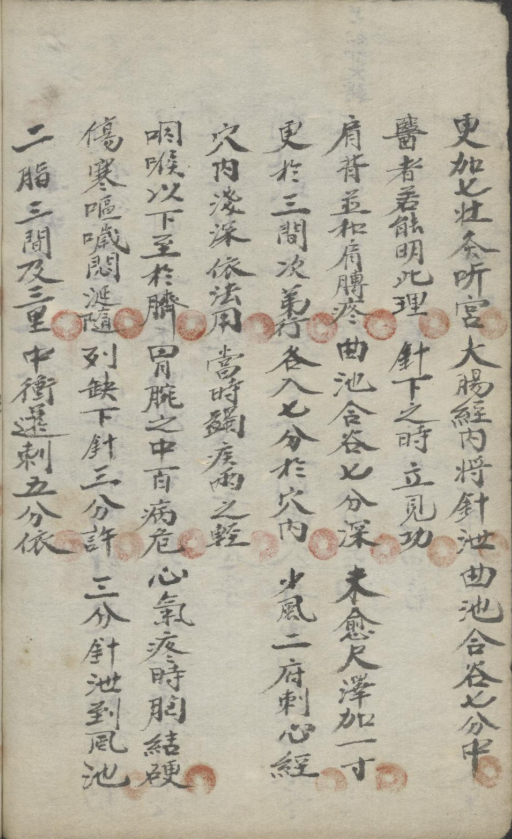 更加七壮灸听宫大腸經內将針泄曲池合谷七分中
醫者若能明此理針下之時立見功
肩背並和肩膊疼曲池合谷七分深未愈尺澤加一寸
更於三間次第行各入七分於穴內少風二府刺心經
穴內淺深依法用當時蠲疾兩之輕
咽喉以下至於臍胃脘之中百病危心氣疼時胸結硬
傷寒嘔噦悶涎隨列缺下針三分許三分針泄到风池
二脂三間及三里中衝還刺五分依